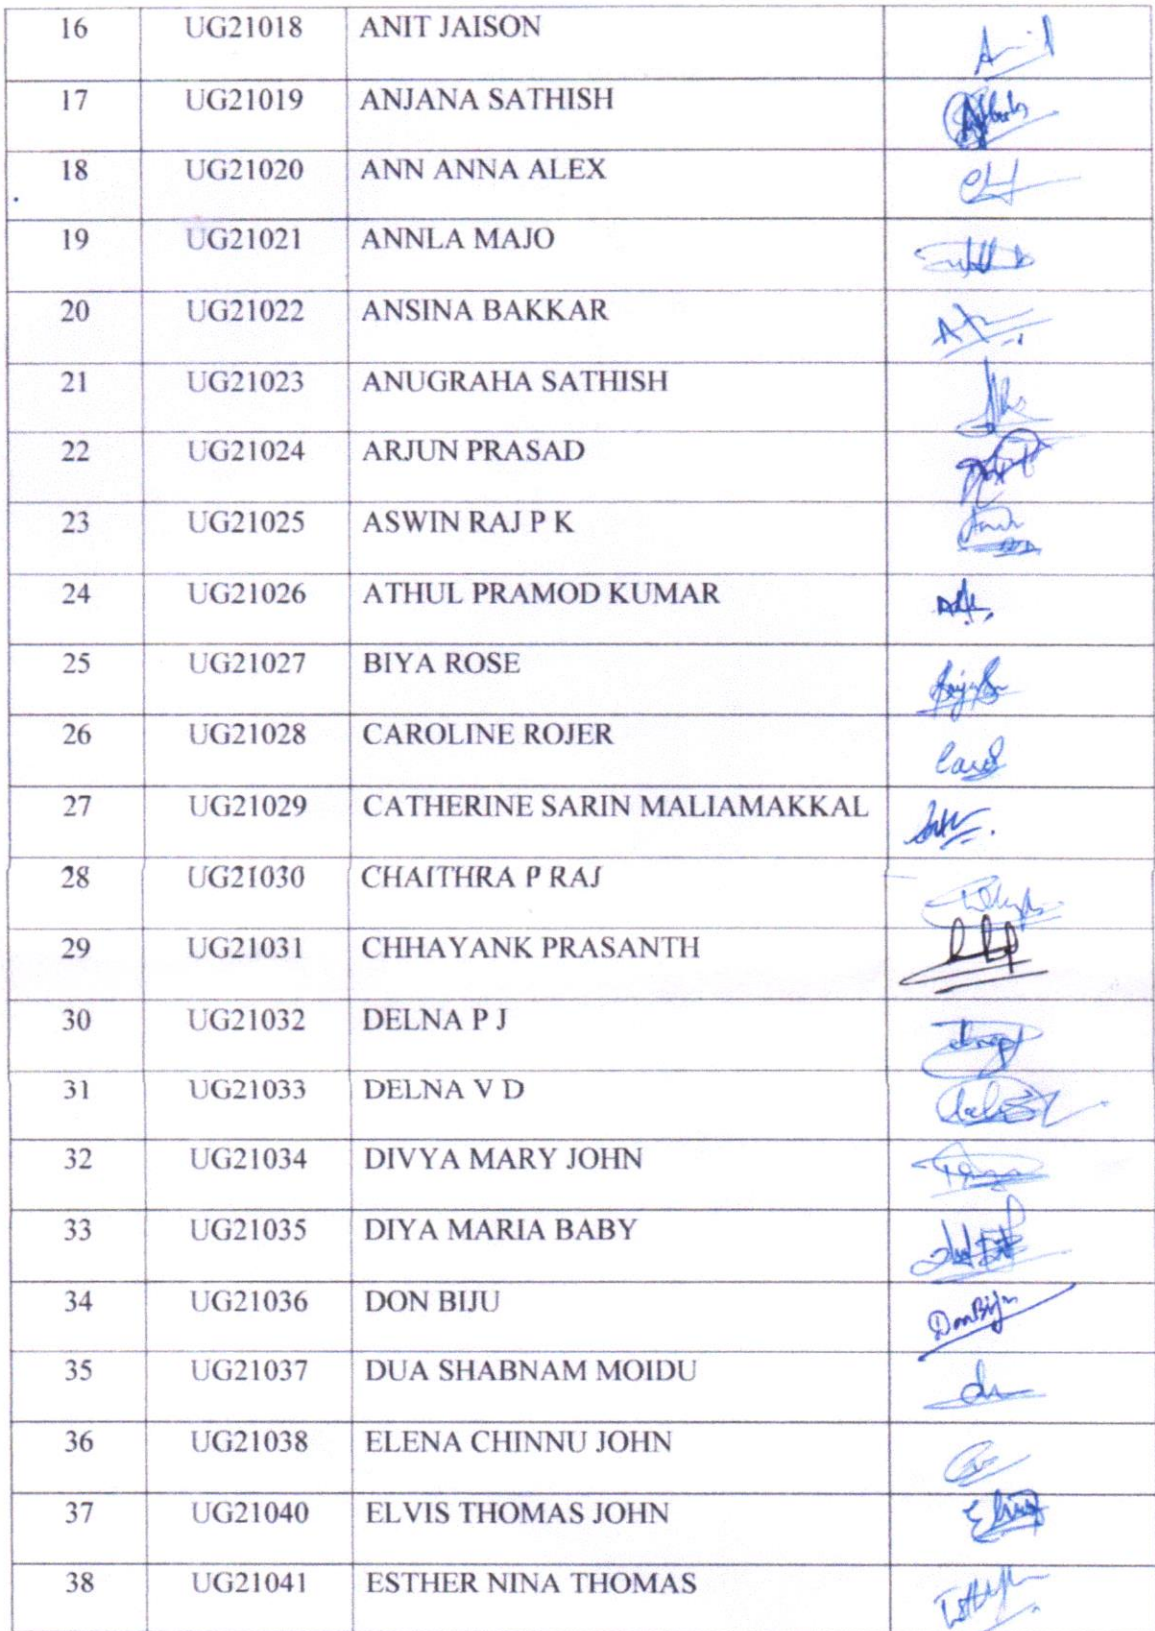 16 UG21018 ANIT JAISON
17 UG21019 ANJANA SATHISH
18 UG21020 ANN ANNA ALEX
19 UG21021 ANNLA MAJO
20 UG21022 ANSINA BAKKAR
21 UG21023 ANUGRAHA SATHISH
22 UG21024 ARJUN PRASAD
23 UG21025 ASWIN RAJ P K
24 UG21026 ATHUL PRAMOD KUMAR
25 UG21027 BIYA ROSE
26 UG21028 CAROLINE ROJER
27 UG21029 CATHERINE SARIN MALIAMAKKAL
28 UG21030 CHAITHRA P RAJ
29 UG21031 CHHAYANK PRASANTH
30 UG21032 DELNA P J
31 UG21033 DELNA V D
32 UG21034 DIVYA MARY JOHN
33 UG21035 DIYA MARIA BABY
34 UG21036 DON BIJU Don Biju
35 UG21037 DUA SHABNAM MOIDU
36 UG21038 ELENA CHINNU JOHN
37 UG21040 ELVIS THOMAS JOHN
38 UG21041 ESTHER NINA THOMAS